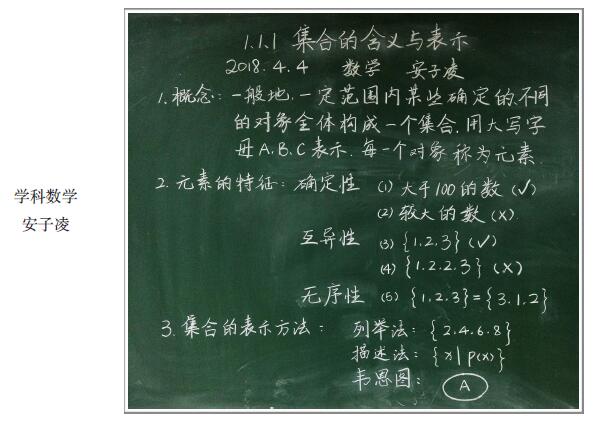 学科数学
安子凌
1.1.1 集合的含义与表示
2018.4.4 数学 安子凌
1.概念：一般地.一定范围内某些确定的.不同
的对象全体构成一个集合.用大写字
母A.B.C表示.每一个对象称为元素.
2.元素的特征：确定性 (1)大于100的数(√)
(2)较大的数(×)
互异性 (3){1.2.3}(√)
(4){1.2.2.3}(×)
无序性 (5){1.2.3}={3.1.2}
3.集合的表示方法： 列举法：{2.4.6.8}
描述法：{x|p(x)}
韦恩图： A